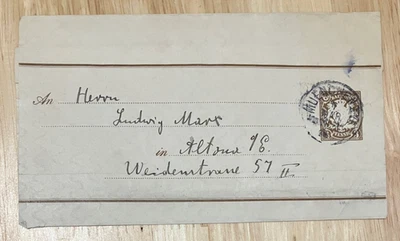 An Herrn
Ludwig Marx
in Altona a/E.
Weidenstrasse 57 II
MUENCHEN